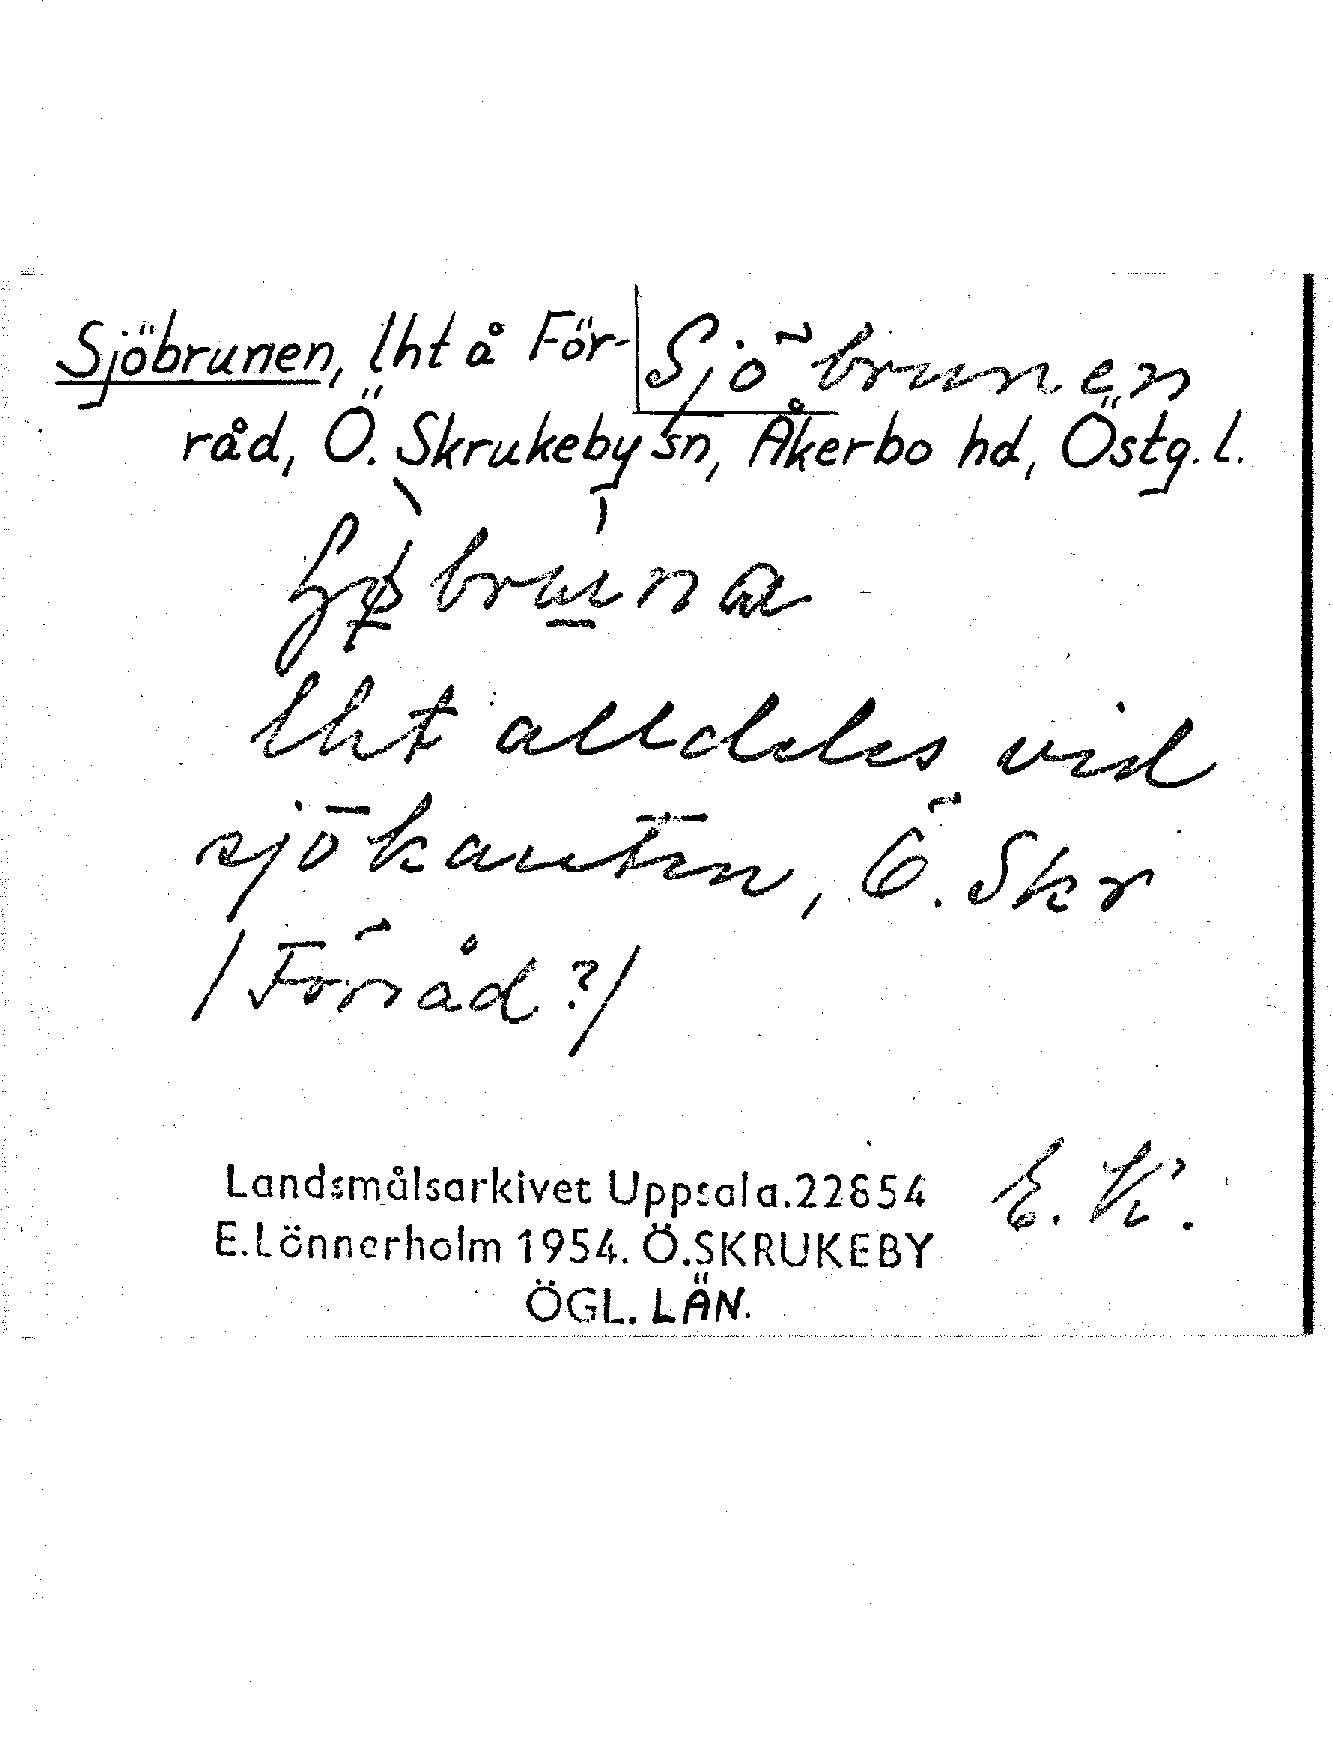 Sjöbrunen, lht å För- Sjöbrunen
råd, Ö. Skrukeby sn, Åkerbo hd, Östg. l.
lht alldeles vid
sjökanten, Ö. Skr
/Förråd?/
Landsmålsarkivet Uppsala.22654 E. K.
E.Lönnerholm 1954. Ö.SKRUKEBY
ÖGL. LÄN.